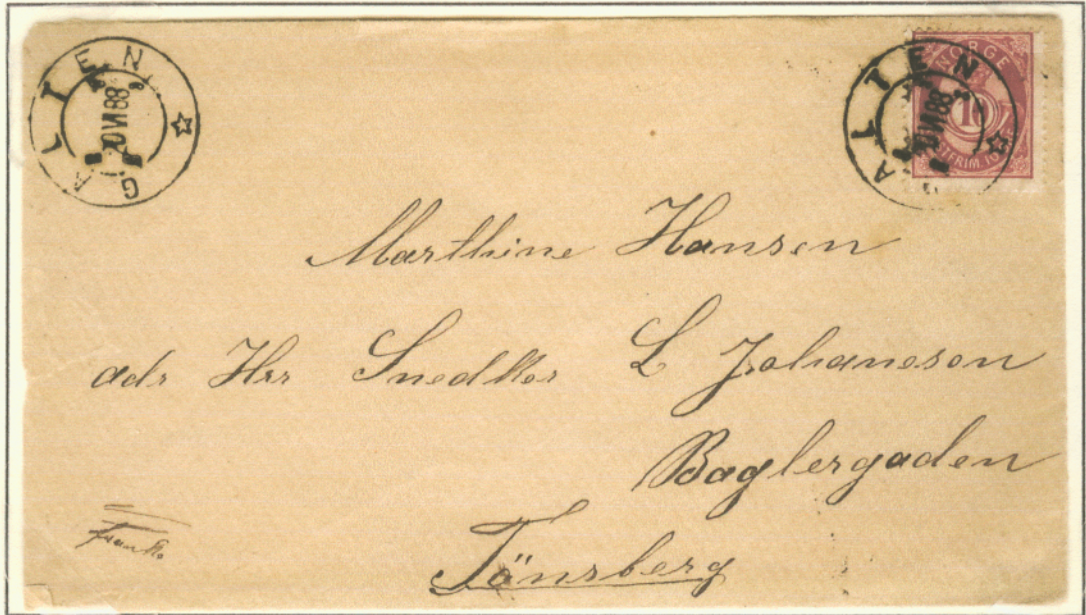 GALTEN
20 VI 88
GALTEN
20 VI 88
NORGE
10
Marthine Hansen
adr Hrr Snedker L Johansson
Baglergaden
Tönsberg
Franko